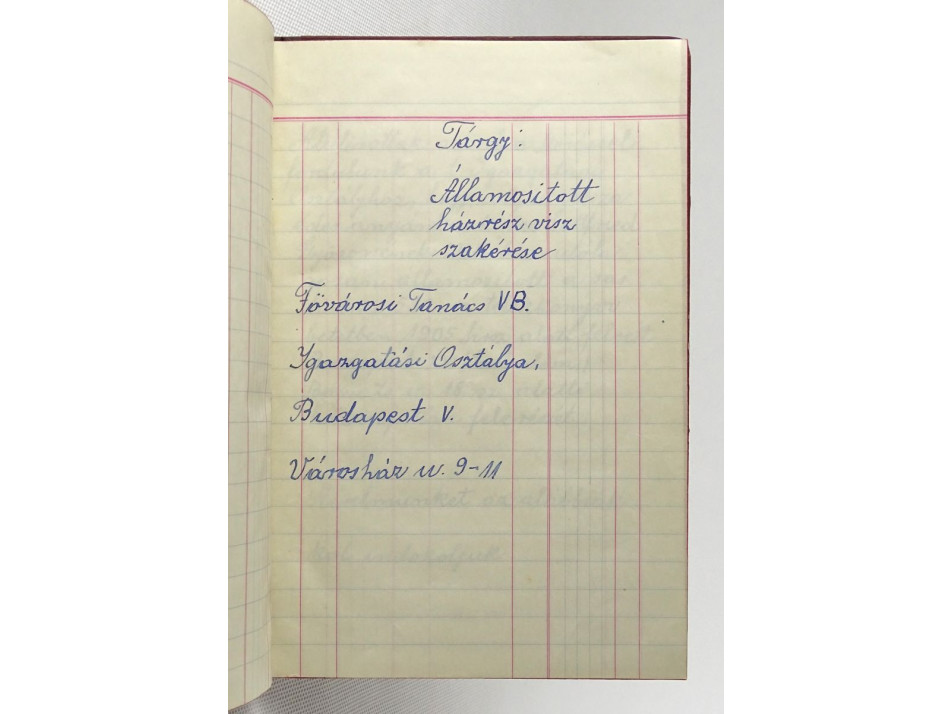 Tárgy:
Államositott
házrész visz
szakérése
Fővárosi Tanács VB.
Igazgatási Osztálya,
Budapest V.
Városház u. 9-11